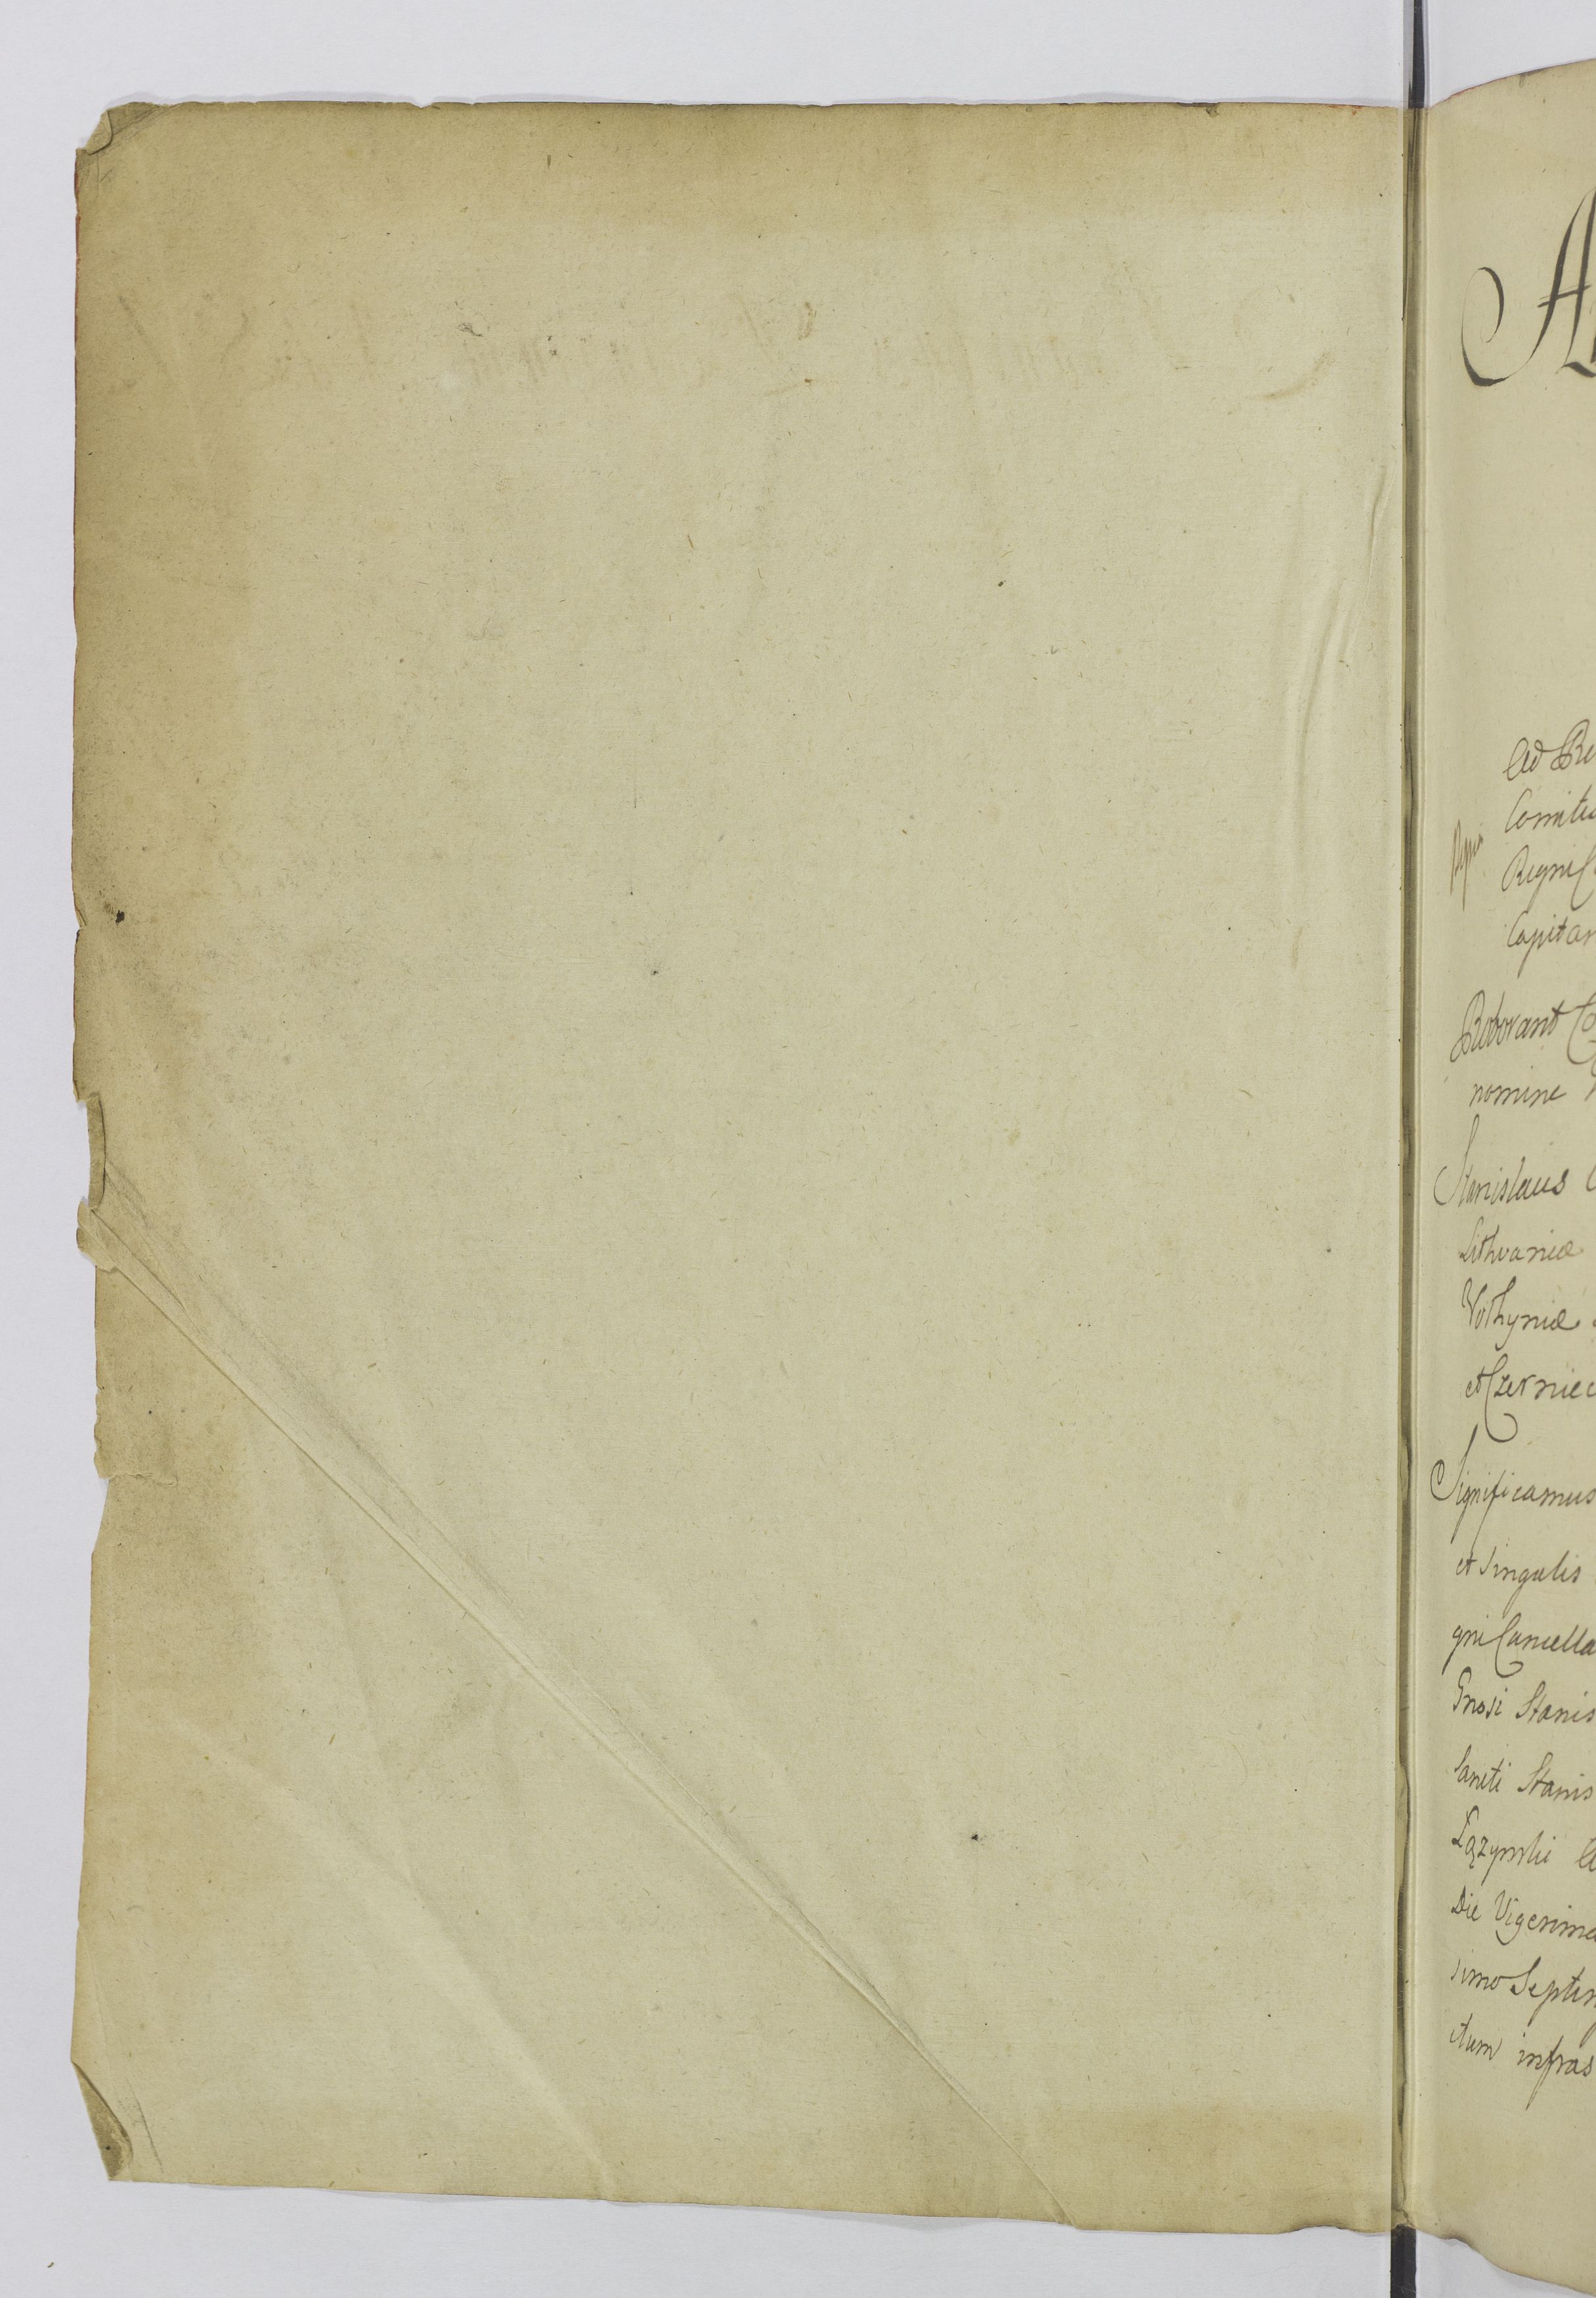 A
Ad Re
Comite
Regni C
Capitan
Roborant Co
nomine
Stanislaus
Lithvaniæ
Volhyniæ
et Czerniec
Significamus
et Singulis
gni Cancella
Gnosi Stanis
Sancti Stanis
Łązynski
Die Vigesima
simo Septim
ctum infras